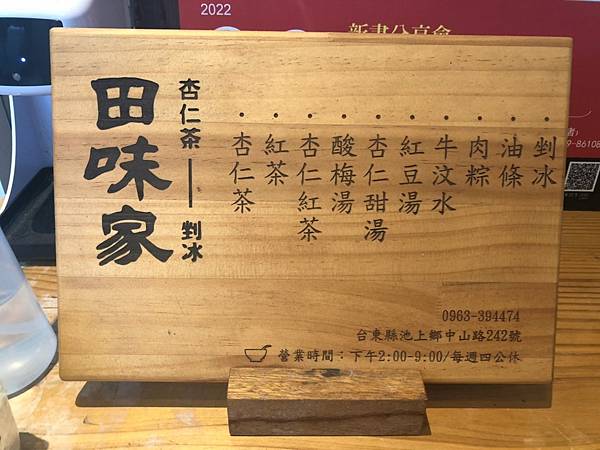 2022
新書分享會
者:
9-86108
田味家
杏仁茶──剉冰
剉冰
油條
肉粽
牛汶水
紅豆湯
杏仁甜湯
酸梅湯
杏仁紅茶
紅茶
杏仁茶
0963-394474
台東縣池上鄉中山路242號
營業時間：下午2:00-9:00/每週四公休